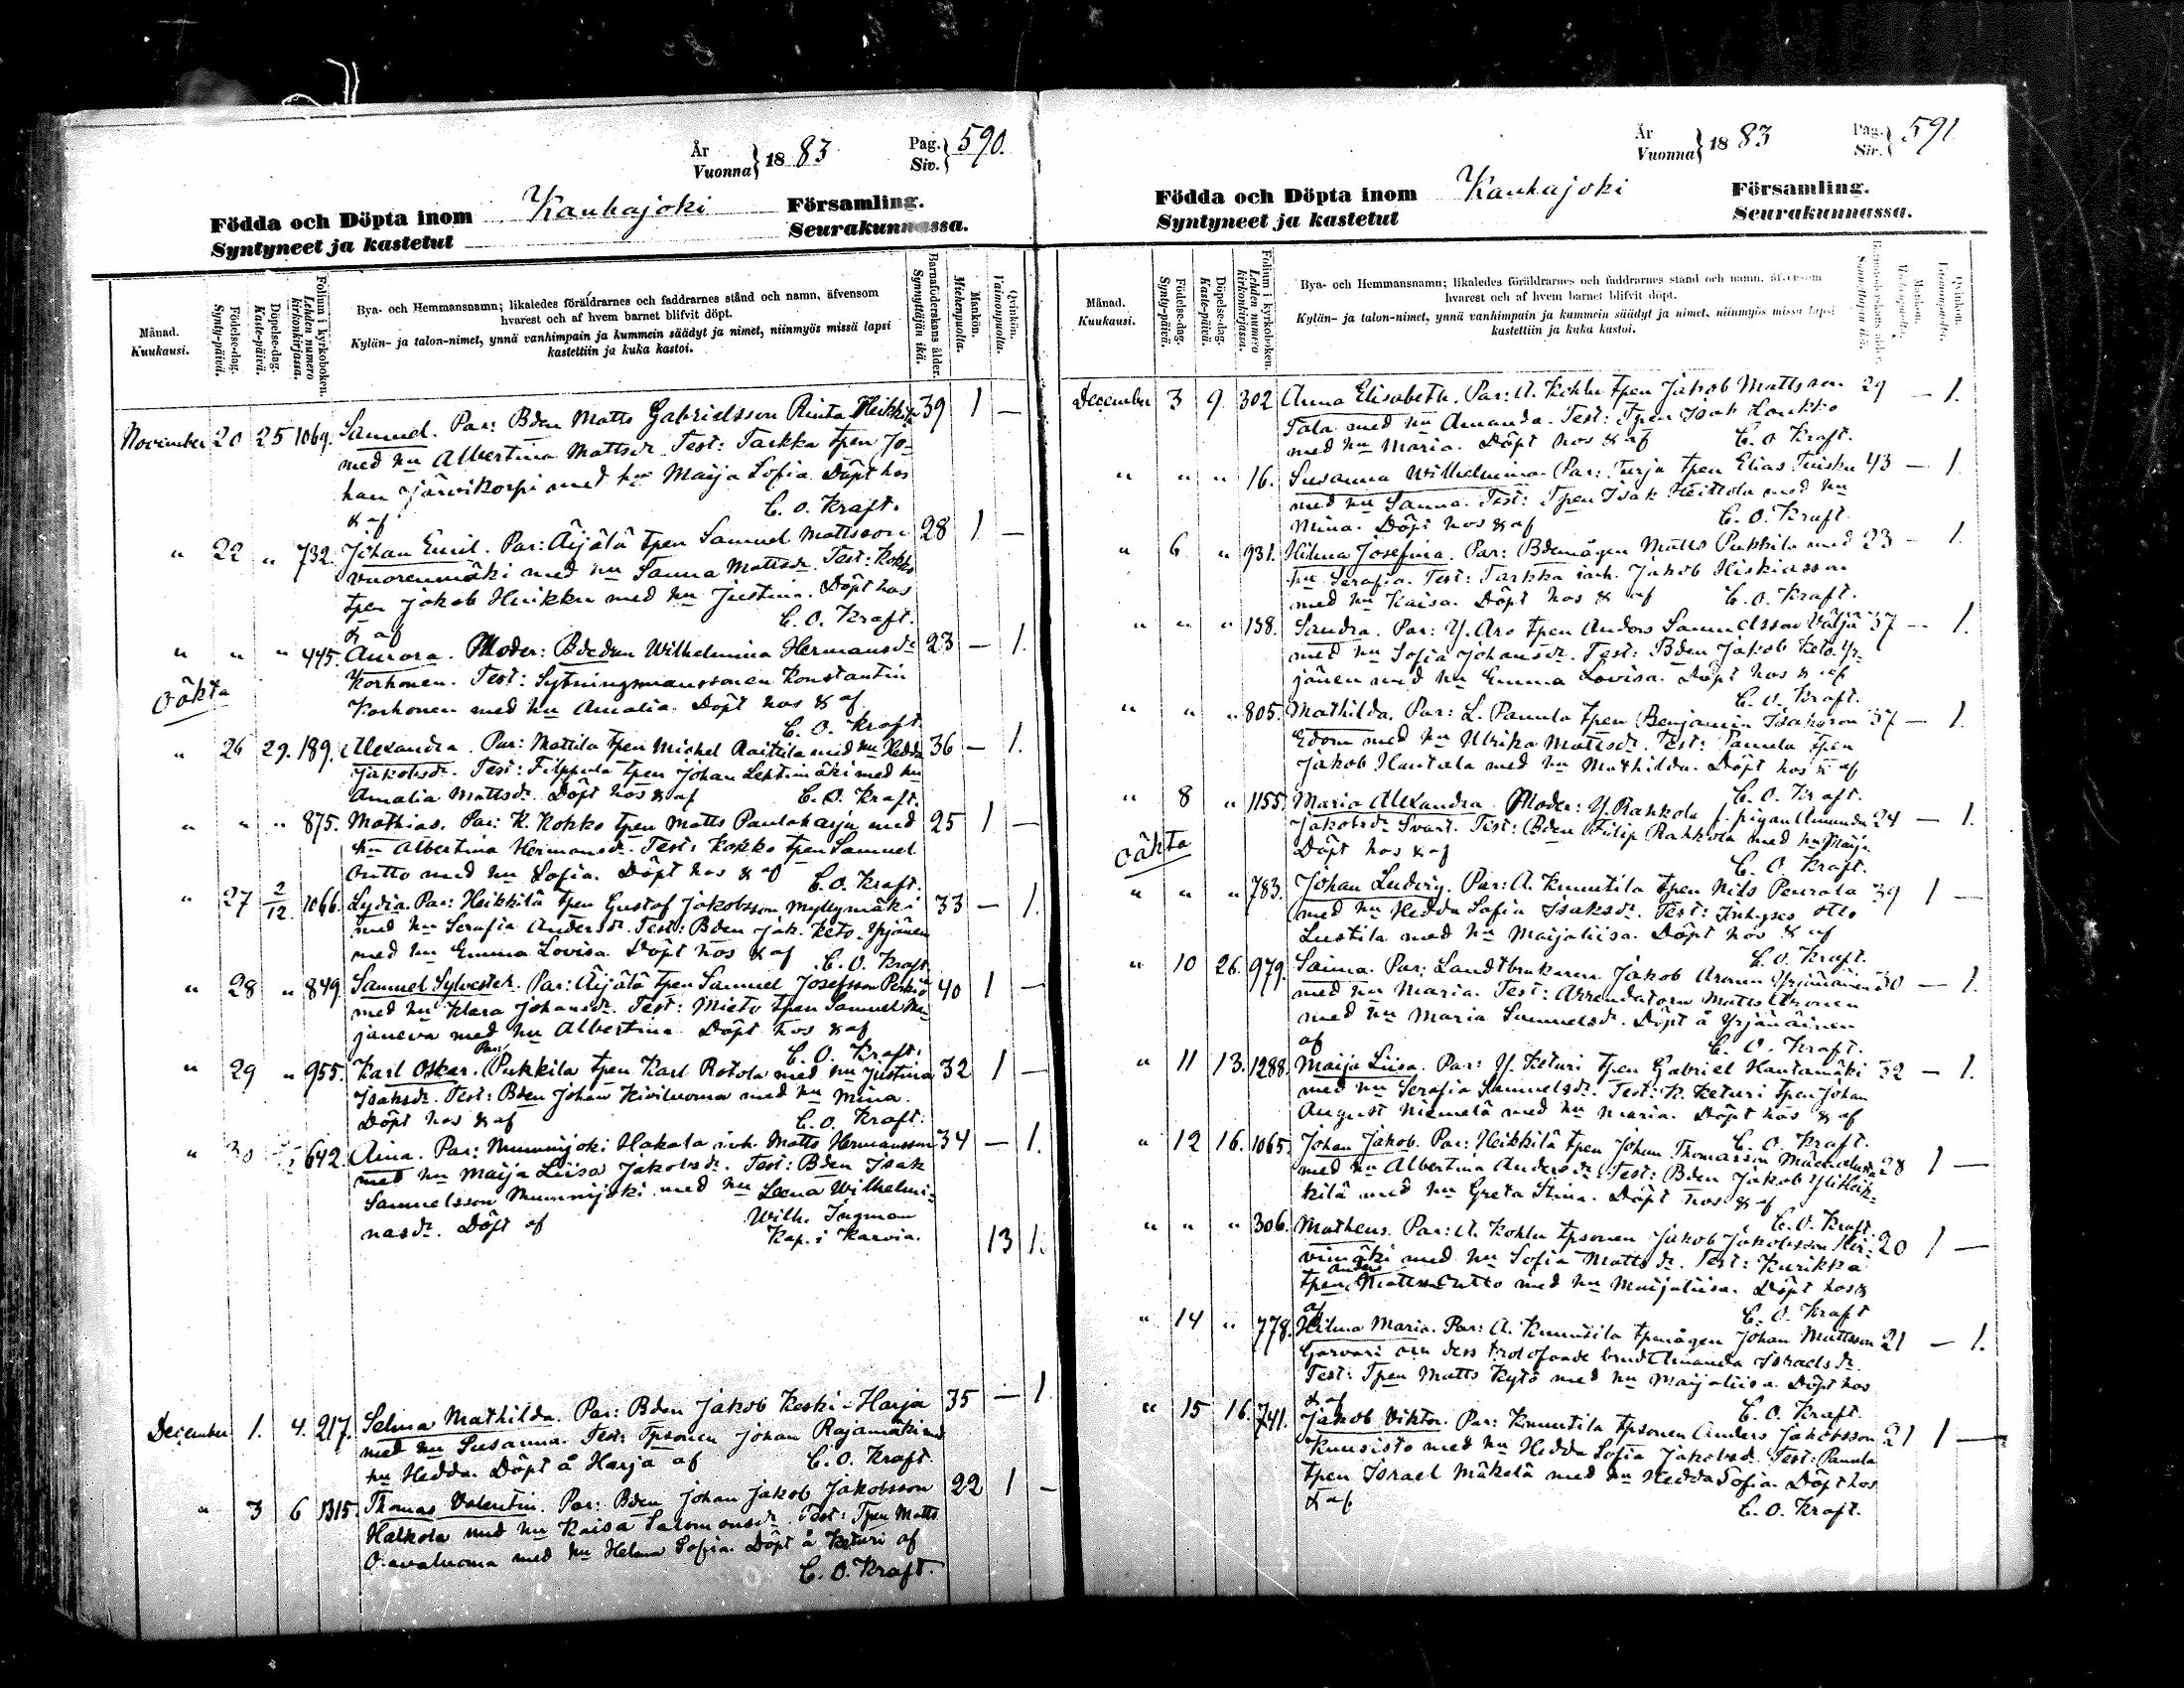 År
Vuonna } 18 83
Pag.
Siv. } 590.
Födda och Döpta inom Kauhajoki Församling.
Syntyneet ja kastetut Seurakunnassa.
Månad.
Kuukausi.
Födelse-dag.
Synty-päivä.
Döpelse-dag.
Kaste-päivä.
Folium i kyrkoboken.
Lehden numero kirkonkirjassa.
Bya- och Hemmansnamn; likaledes föräldrarnes och faddrarnes stånd och namn, äfvensom
hvarest och af hvem barnet blifvit döpt.
Kylän- ja talon-nimet, ynnä vanhimpain ja kummein säädyt ja nimet, niinmyös missä lapsi
kastettiin ja kuka kastoi.
Barnaföderskans ålder.
Synnyttäjän ikä.
Mankön.
Miehenpuolia.
Qvinkön.
Vaimonpuolia.
November 20 25 1069. Samuel. Par: Bden Matts Gabrielsson Rinta Heikkilä 39 1 —
med hu Albertina Mattsdr. Test: Tarkka tpen Jo-
han Järvikorpi med hu Maija Sofia. Döpt hos
& af C. O. Kraft.
" 22 " 732. Johan Emil. Par: Äijälä tpen Samuel Mattsson 28 1 —
Vuorenmäki med hu Sanna Mattsdr. Test: Kokko
tpen Jakob Huikku med hu Justina. Döpt hos
& af C. O. Kraft.
" " " 445. Aurora. Moder: Bdedan Wilhelmina Hermansdr 23 — 1.
oäkta
Korhonen. Test: Sytningsmanssonen Konstantin
Korhonen med hu Amalia. Döpt hos & af
C. O. Kraft
" 26 29. 189. Alexandra. Par: Mattila tpen Michel Raittila med hu Hedda 36 — 1.
Jakobsdr. Test: Filppula tpen Johan Leptimäki med hu
Amalia Mattsdr. Döpt hos & af C. O. Kraft.
" " " 875. Mathias. Par: K. Kokko tpen Matts Paulaharju med 25 1 —
hu Albertina Hermansdr. Test: Kokko tpen Samuel
Outto med hu Sofia. Döpt hos & af C. O. Kraft.
" 27 2/12. 1066. Lydia. Par: Heikkilä tpen Gustaf Jakobsson Myllymäki 33 — 1.
med hu Serafia Andersdr. Test: Bden Jak. Keto-Yrjänen
med hu Emma Lovisa. Döpt hos & af C. O. Kraft.
" 28 " 849. Samuel Sylvester. Par: Äijälä tpen Samuel Josefsson 40 1 —
med hu Klara Johansdr. Test: Mieto tpen Samuel Ma-
janeva med hu Albertina. Döpt hos & af
C. O. Kraft.
" 29 " 955. Karl Oskar. Par: Pukkila tpen Karl Rotola med hu Justina 32 1 —
Isaksdr. Test: Bden Johan Kiviluoma med hu Mina.
Döpt hos & af C. O. Kraft.
" 30 642. Aina. Par: Nummijoki Hakala inh. Matts Hermansson 34 — 1.
med hu Maija Liisa Jakobsdr. Test: Bden Isak
Samuelsson Nummijoki med hu Leena Wilhelmi-
nasdr. Döpt af Wilh. Ingman
Kap. i Karvia.
13 1.
December 1. 4. 217. Selma Mathilda. Par: Bden Jakob Keski-Harja 35 — 1
med hu Susanna. Test: Tpsonen Johan Rajamäki med
hu Hedda. Döpt å Harja af C. O. Kraft.
" 3 6 1315. Thomas Valentin. Par: Bden Johan Jakob Jakobsson 22 1 —
Halkola med hu Kaisa Salomonsdr. Test: Tpen Matts
med hu Helena Sofia. Döpt å Keturi af
C. O. Kraft.
År
Vuonna } 18 83
Pag.
Siv. } 591
Födda och Döpta inom Kauhajoki Församling.
Syntyneet ja kastetut Seurakunnassa.
Månad.
Kuukausi.
Födelse-dag.
Synty-päivä.
Döpelse-dag.
Kaste-päivä.
Folium i kyrkoboken.
Lehden numero kirkonkirjassa.
Bya- och Hemmansnamn; likaledes föräldrarnes och faddrarnes stånd och namn, äfvensom
hvarest och af hvem barnet blifvit döpt.
Kylän- ja talon-nimet, ynnä vanhimpain ja kummein säädyt ja nimet, niinmyös missä lapsi
kastettiin ja kuka kastoi.
Qvinkön.
December 3 9. 302 Anna Elisabeth. Par: A. Kohlu tpen Jakob Mattsson 29 — 1.
Tala med hu Amanda. Test: Tpen Isak Loukko
med hu Maria. Döpt hos & af C. O. Kraft.
" " " 16. Susanna Wilhelmina. Par: Turja tpen Elias Tuisku 43 — 1
med hu Sanna. Test: Tpen Isak Heittola med hu
Mina. Döpt hos & af C. O. Kraft.
" 6 " 931. Hilma Josefina. Par: Bdemågen Matts Pukkila med 23 — 1.
hu Serafia. Test: Tarkka inh. Jakob Hiskiasson
med hu Kaisa. Döpt hos & af C. O. Kraft.
" " " 158. Sandra. Par: Y. Aro tpen Anders Samuelsson Väljä 37 — 1.
med hu Sofia Johansdr. Test: Bden Jakob Keto-Yr-
jänen med hu Emma Lovisa. Döpt hos & af
C. O. Kraft.
" " " 805. Mathilda. Par: L. Panula tpen Benjamin Isaksson 37 — 1.
Edom med hu Ulrika Mattsdr. Test: Panula tpen
Jakob Hautala med hu Mathilda. Döpt hos & af
C. O. Kraft.
" 8 " 1155. Maria Alexandra. Moder: Y. Rahkola f. pigan Amanda 24 — 1.
oäkta
Jakobsdr Svart. Test: Bden Filip Rahkola med hu Maija
Döpt hos & af C. O. Kraft.
" " " 783. Johan Ludvig. Par: A. Knuutila tpen Nils Peurala 39 1 —
med hu Hedda Sofia Isaksdr. Test: Inhyses Otto
Lustila med hu Maijaliisa. Döpt hos & af
C. O. Kraft.
" 10 26. 979. Saima. Par: Landtbrukaren Jakob Aronen Yrjänäinen 30 — 1.
med hu Maria. Test: Arrendatorn Matts Aronen
med hu Maria Samuelsdr. Döpt å Yrjänäinen
af C. O. Kraft.
" 11 13. 1288. Maija Liisa. Par: Y. Keturi tpen Gabriel Hautamäki 32 — 1.
med hu Serafia Samuelsdr. Test: K. Keturi tpen Johan
August Niemelä med hu Maria. Döpt hos & af
C. O. Kraft.
" 12 16. 1065. Johan Jakob. Par: Heikkilä tpen Johan Thomasson 28 1 —
med hu Albertina Andersdr. Test: Bden Jakob Yliheik-
kilä med hu Greta Stina. Döpt hos & af
C. O. Kraft
" " " 306. Matheus. Par: A. Kohlu tpsonen Jakob Jakobsson Hir- 20 1 —
vimäki med hu Sofia Mattsdr. Test: Kurikka
tpen Anders Mattsson Outto med hu Maijaliisa. Döpt hos &
af C. O. Kraft
" 14 " 778. Hilma Maria. Par: A. Knuutila tpmågen Johan Mattsson 21 — 1.
Garvari och dess trolofvade brud Amanda Israelsdr.
Test: Tpen Matts Kytö med hu Maijaliisa. Döpt hos
& af C. O. Kraft.
" 15 16. 741. Jakob Viktor. Par: Knuutila tpsonen Anders Jakobsson 21 1 —
Kuusisto med hu Hedda Sofia Jakobsdr. Test: Panula
tpen Israel Mäkelä med hu Hedda Sofia. Döpt hos
& af C. O. Kraft.